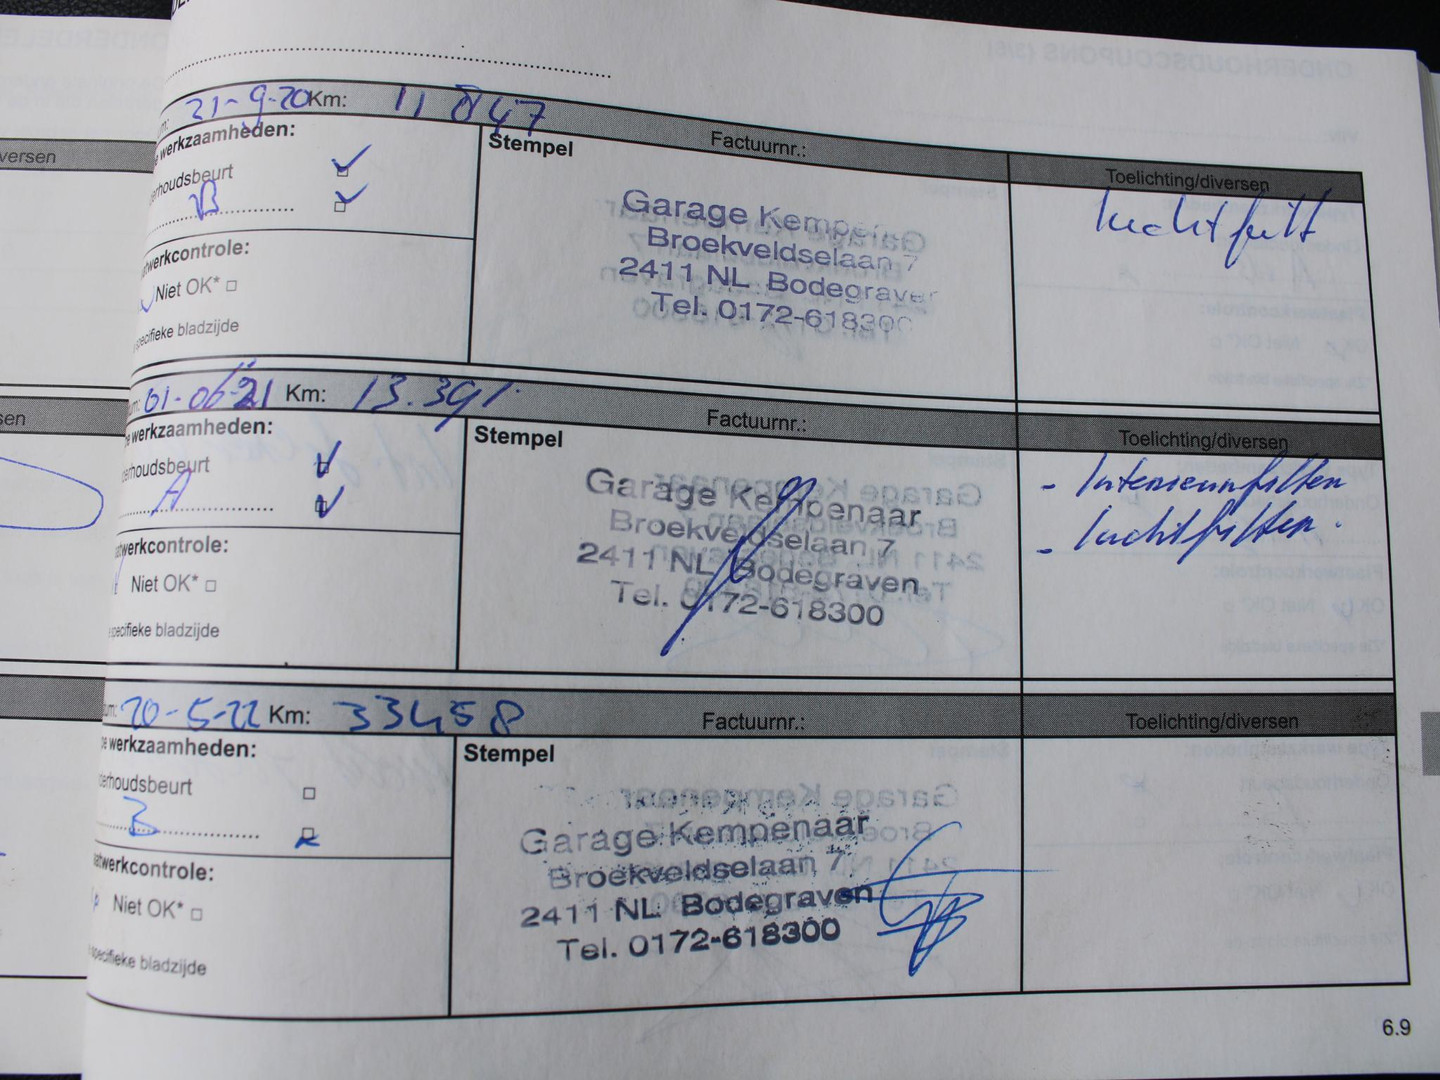 21-9-20 Km: 11847
werkzaamheden:
Stempel
Factuurnr.:
Toelichting/diversen
erhoudsbeurt
B
Garage Kempenaar
Broekveldselaan 7
2411 NL Bodegraven
Tel. 0172-618300
luchtfilt
twerkcontrole:
Niet OK*
specifieke bladzijde
01-06-21 Km: 13.391
werkzaamheden:
Stempel
Factuurnr.:
Toelichting/diversen
erhoudsbeurt
A
Garage Kempenaar
Broekveldselaan 7
2411 NL Bodegraven
Tel. 0172-618300
- Interieurfilter
- luchtfilter.
twerkcontrole:
Niet OK*
specifieke bladzijde
20-5-22 Km: 33458
werkzaamheden:
Stempel
Factuurnr.:
Toelichting/diversen
erhoudsbeurt
B
Garage Kempenaar
Broekveldselaan 7
2411 NL Bodegraven
Tel. 0172-618300
twerkcontrole:
Niet OK*
specifieke bladzijde
6.9